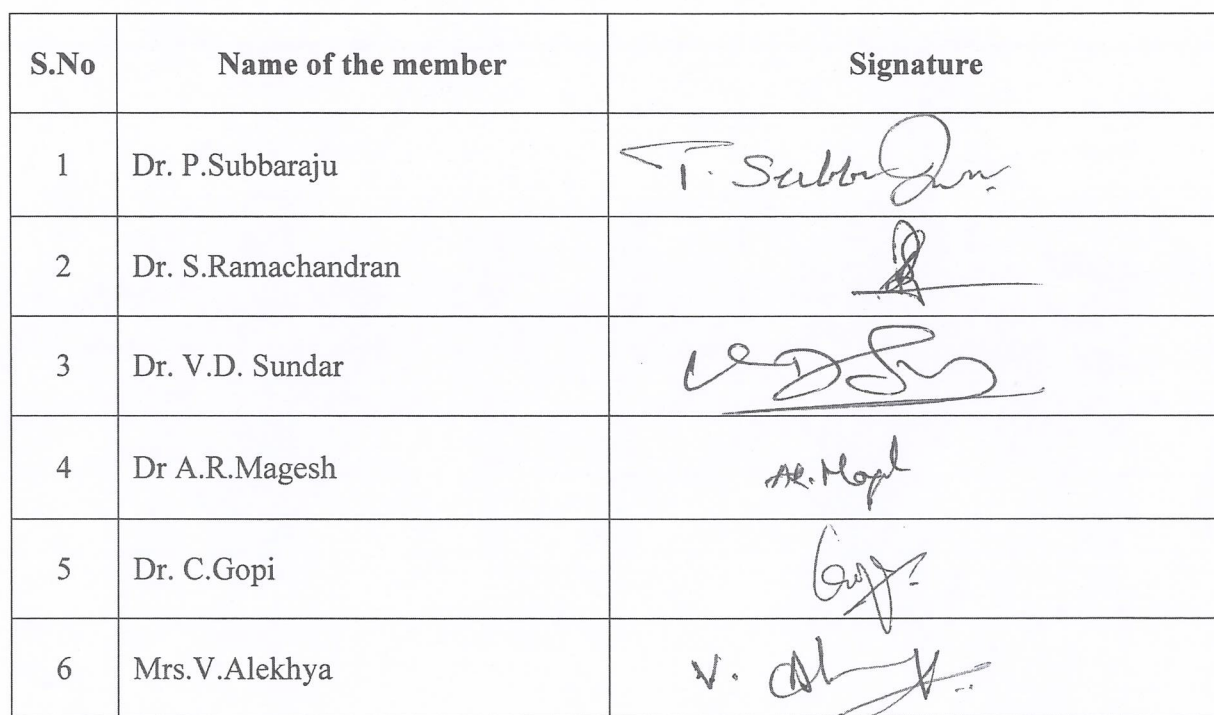 S.No Name of the member Signature
1 Dr. P.Subbaraju P. Subbaraju
2 Dr. S.Ramachandran
3 Dr. V.D. Sundar V D Sun
4 Dr A.R.Magesh AR. Magesh
5 Dr. C.Gopi Gopi
6 Mrs.V.Alekhya V.